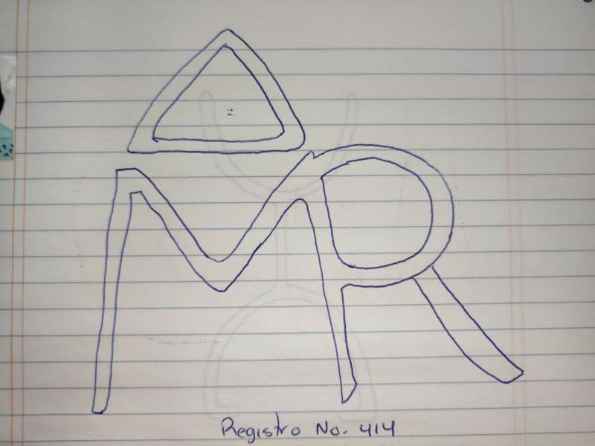 MR
Registro No. 414